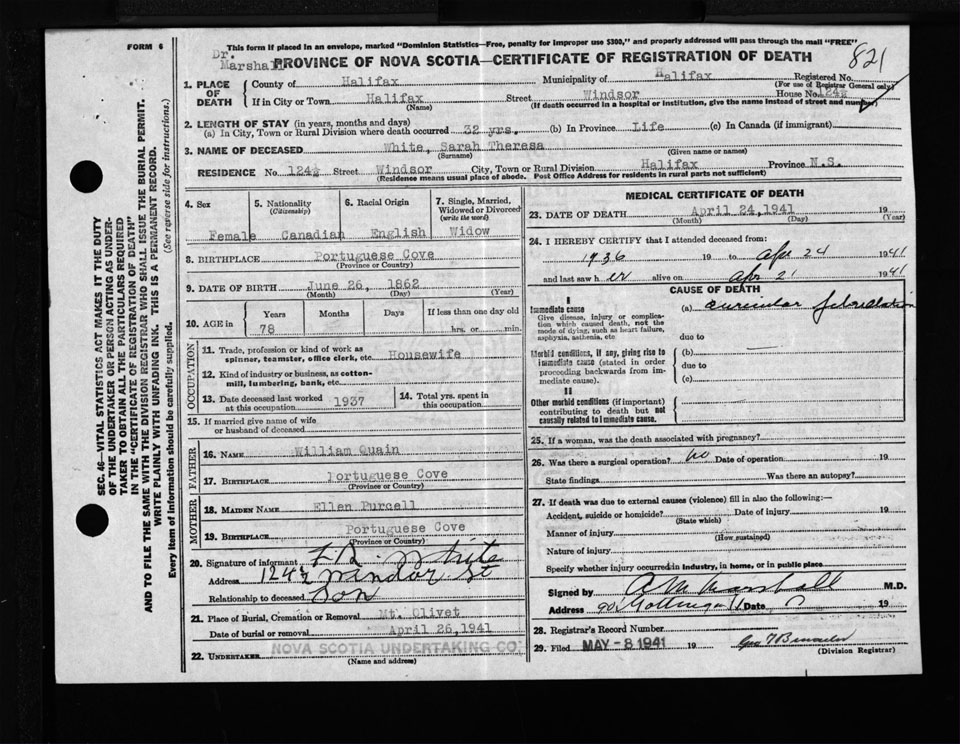 FORM 6
This form if placed in an envelope, marked "Dominion Statistics—Free, penalty for improper use $300," and properly addressed will pass through the mail "FREE"
Dr. Marshall
PROVINCE OF NOVA SCOTIA—CERTIFICATE OF REGISTRATION OF DEATH
821
1. PLACE OF DEATH
County of Halifax Municipality of Halifax Registered No.
(For use of Registrar General only)
If in City or Town Halifax Street Windsor House No. 124½
(Name) (If death occurred in a hospital or institution, give the name instead of street and number)
2. LENGTH OF STAY (in years, months and days)
(a) In City, Town or Rural Division where death occurred 32 yrs. (b) In Province Life (c) In Canada (if immigrant)
3. NAME OF DECEASED White, Sarah Theresa
(Surname) (Given name or names)
RESIDENCE No. 124½ Street Windsor City, Town or Rural Division Halifax Province N.S.
(Residence means usual place of abode. Post Office Address for residents in rural parts not sufficient)
4. Sex
Female
5. Nationality
(Citizenship)
Canadian
6. Racial Origin
English
7. Single, Married, Widowed or Divorced
(write the word)
Widow
8. BIRTHPLACE Portuguese Cove
(Province or Country)
9. DATE OF BIRTH June 26, 1862
(Month) (Day) (Year)
10. AGE in
Years Months Days If less than one day old
78 hrs. or min.
OCCUPATION
11. Trade, profession or kind of work as spinner, teamster, office clerk, etc. Housewife
12. Kind of industry or business, as cotton-mill, lumbering, bank, etc.
13. Date deceased last worked at this occupation 1937
14. Total yrs. spent in this occupation
15. If married give name of wife or husband of deceased
FATHER
16. NAME William Quain
17. BIRTHPLACE Portuguese Cove
(Province or Country)
MOTHER
18. MAIDEN NAME Ellen Purcell
19. BIRTHPLACE Portuguese Cove
(Province or Country)
20. Signature of informant White
Address 124½ Windsor St
Relationship to deceased Son
21. Place of Burial, Cremation or Removal Mt. Olivet
Date of burial or removal April 26, 1941
22. UNDERTAKER NOVA SCOTIA UNDERTAKING CO.
(Name and address)
MEDICAL CERTIFICATE OF DEATH
23. DATE OF DEATH April 24, 1941 19
(Month) (Day) (Year)
24. I HEREBY CERTIFY that I attended deceased from:
1936 19 to Apr 24 1941
and last saw her alive on Apr 21 1941
CAUSE OF DEATH
I
Immediate cause
Give disease, injury or complication which caused death, not the mode of dying, such as heart failure, asphyxia, asthenia, etc
(a) auricular fibrillation
due to
Morbid conditions, if any, giving rise to immediate cause (stated in order proceeding backwards from immediate cause).
(b)
due to
(c)
II
Other morbid conditions (if important) contributing to death but not causally related to immediate cause.
25. If a woman, was the death associated with pregnancy?
26. Was there a surgical operation? no Date of operation 19
State findings Was there an autopsy?
27. If death was due to external causes (violence) fill in also the following:—
Accident, suicide or homicide? Date of injury 19
(State which)
Manner of injury
(How sustained)
Nature of injury
Specify whether injury occurred in industry, in home, or in public place
Signed by Marshall M.D.
Address Date 19
28. Registrar's Record Number
29. Filed MAY - 8 1941 19
(Division Registrar)
SEC. 46—VITAL STATISTICS ACT MAKES IT THE DUTY
OF THE UNDERTAKER OR PERSON ACTING AS UNDER-
TAKER TO OBTAIN ALL THE PARTICULARS REQUIRED
IN THE "CERTIFICATE OF REGISTRATION OF DEATH"
AND TO FILE THE SAME WITH THE DIVISION REGISTRAR WHO SHALL ISSUE THE BURIAL PERMIT.
WRITE PLAINLY WITH UNFADING INK. THIS IS A PERMANENT RECORD.
Every item of Information should be carefully supplied. (See reverse side for instructions.)